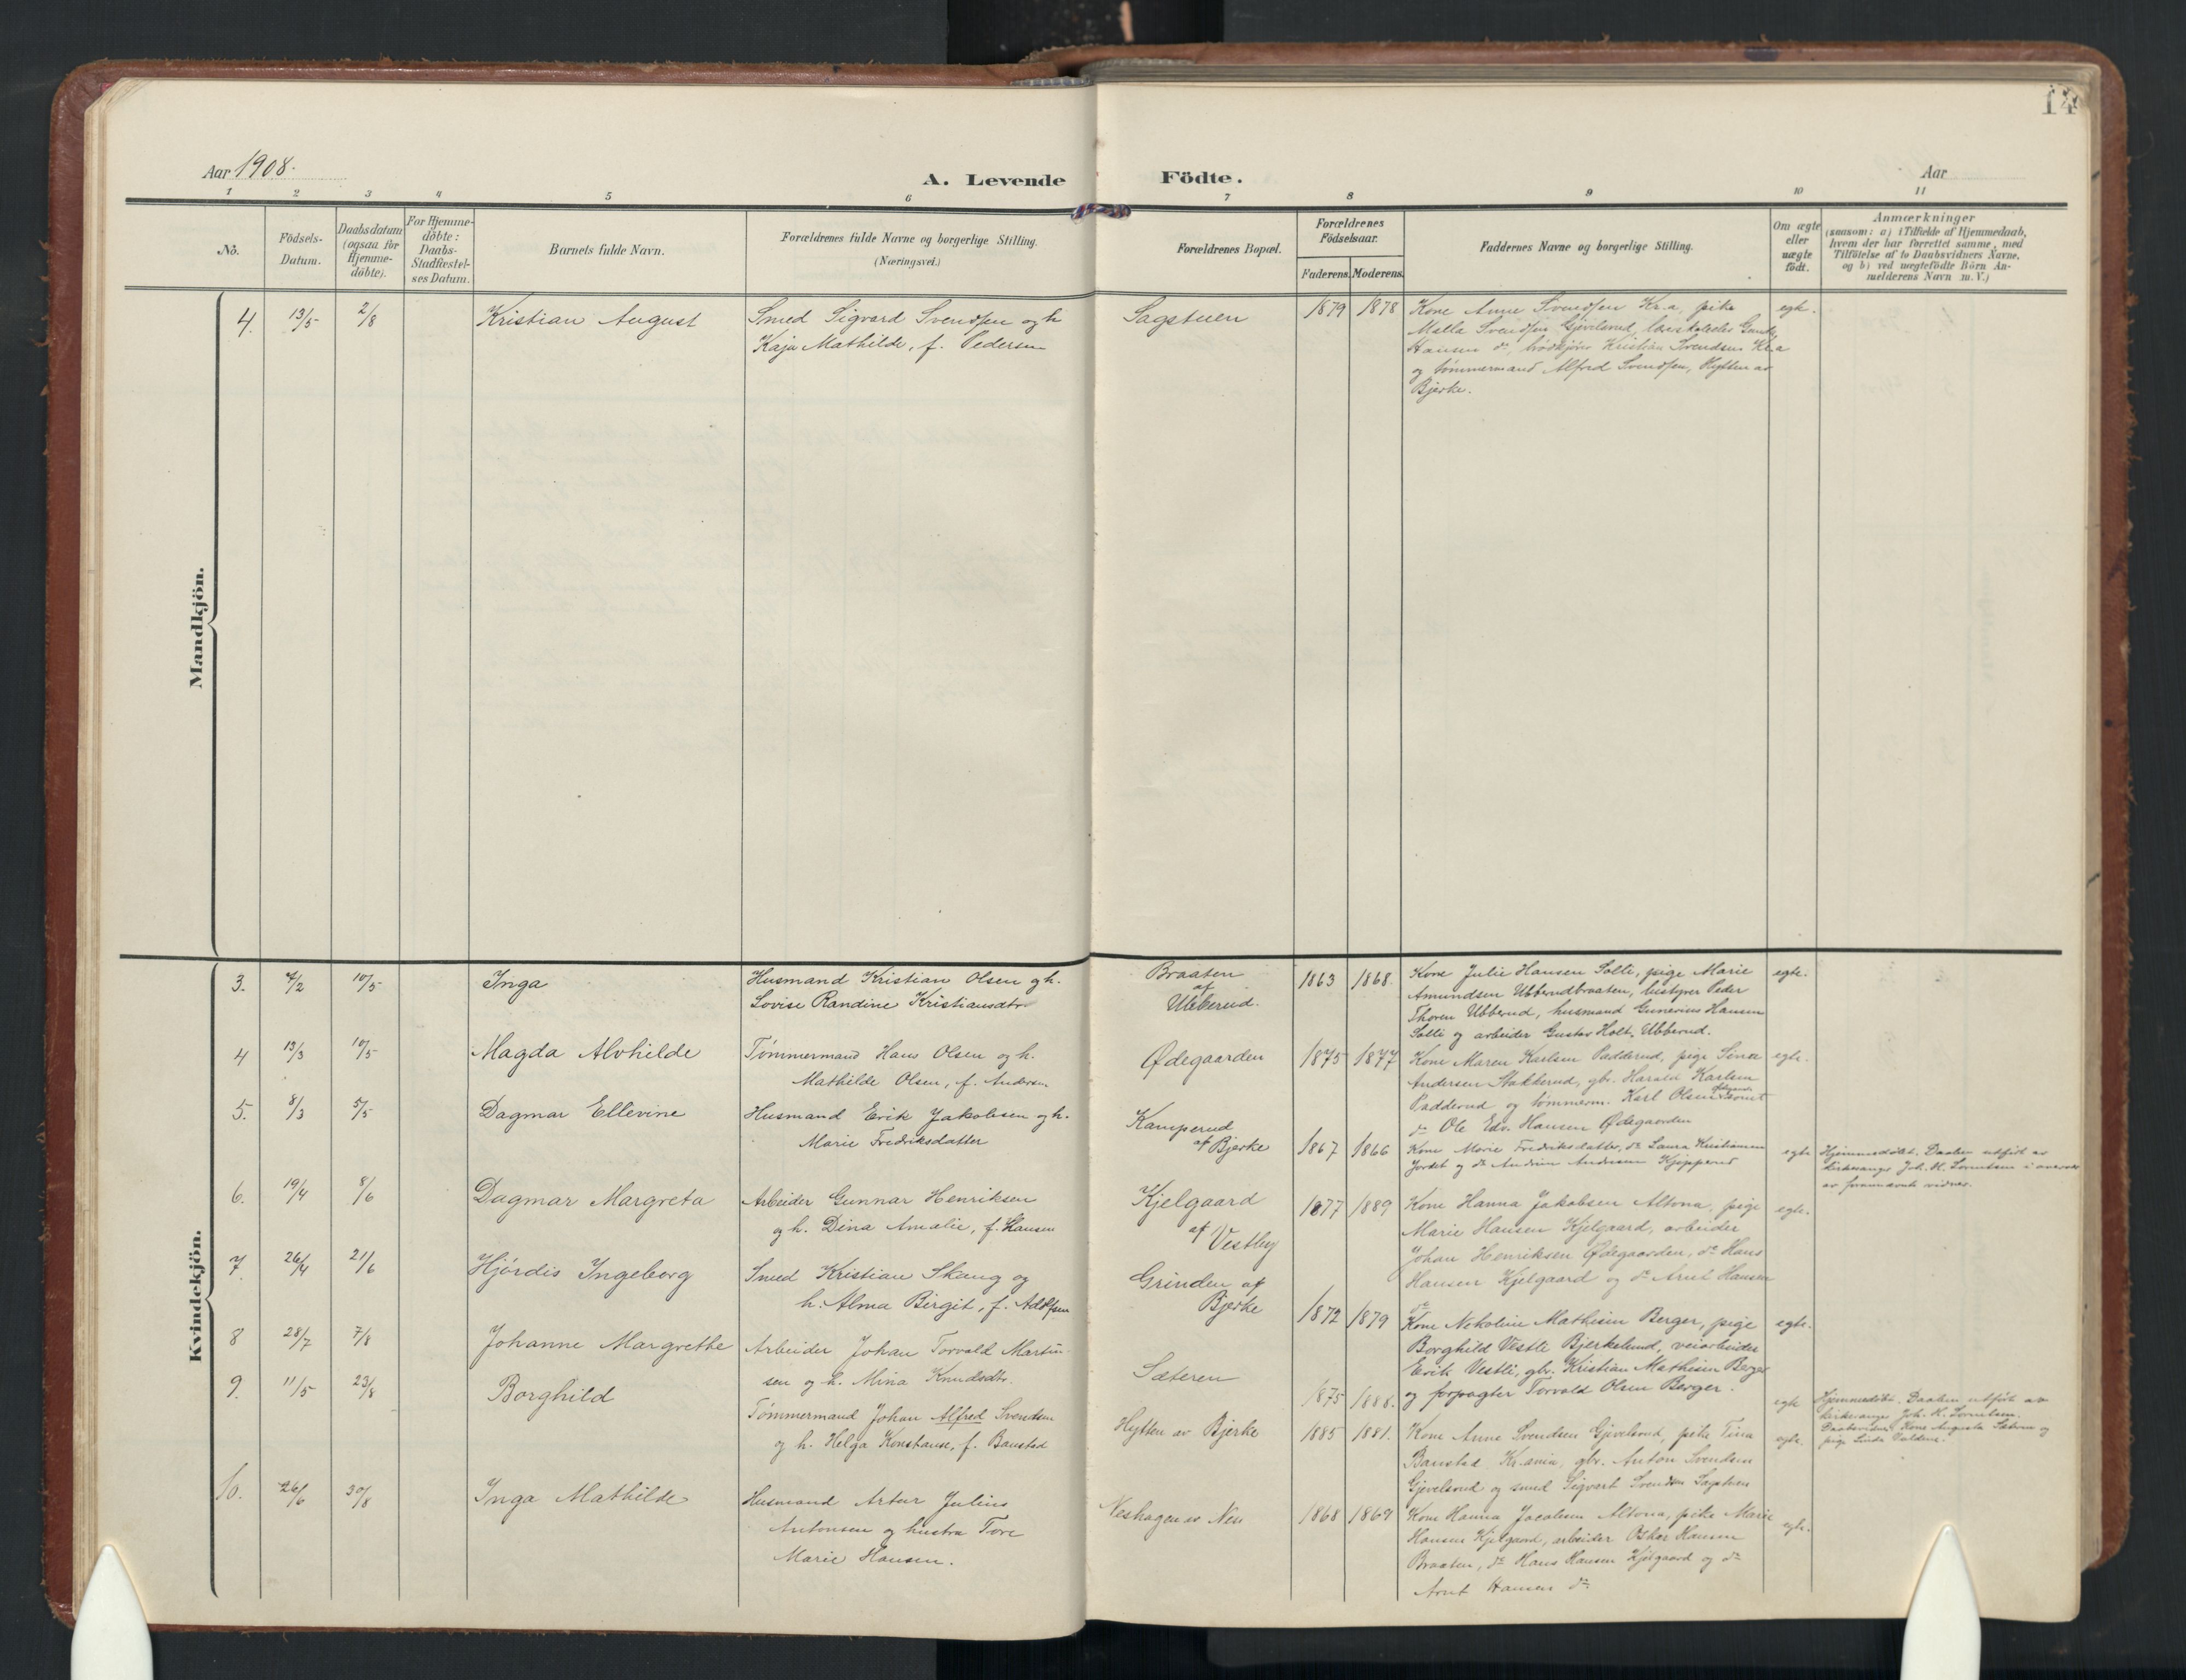 14
Aar 1908.
A. Levende Födte.
Aar
1 2 3 4 5 6 7 8 9 10 11
No.
Födsels-
Datum.
Daabsdatum
(ogsaa for
Hjemme-
döbte).
For Hjemme-
döbte:
Daabs-
Stadfæstel-
ses Datum.
Barnets fulde Navn.
Forældrenes fulde Navne og borgerlige Stilling.
(Næringsvei.)
Forældrenes Bopæl.
Forældrenes
Födselsaar.
Faderens. Moderens.
Faddernes Navne og borgerlige Stilling.
Om ægte
eller
uægte
födt.
Anmærkninger
(saasom: a) i Tilfælde af Hjemmedaab,
hvem der har forrettet samme, med
Tilföielse af to Daabsvidners Navne,
og b) ved uægtefödte Börn An-
melderens Navn m. V.)
Mandkjön.
4. 13/5 2/8
Kristian August
Smed Sigvard Svendsen og h
Kaja Mathilde, f. Pedersen
Sagstuen
1879 1878
Kone Anne Svendsen Kr.a, pike
Svendsen Gjivelsrud,
Hansen do, brødkjører Kristian Svendsen Kr.a
og tømmermand Alfred Svendsen, Hytten av
Bjerke.
egte.
Kvindekjön.
3. 7/2 10/5
Inga
Husmand Kristian Olsen og h.
Lovise Randine Kristiansdtr
Braaten
af
Ubberud.
1863 1868.
Kone Julie Hansen Solli, pige Marie
Amundsen Ubberudbraaten, bestyrer Peder
Thoren Ubberud, husmand Gunerius Hansen
Solli og arbeider Gustav Holt, Ubberud.
egte.
4 13/3 10/5
Magda Alvhilde
Tømmermand Hans Olsen og h.
Mathilde Olsen, f. Andersen
Ødegaarden
1875 1877
Kone Maren Karlsen Padderud, pige Sina
Andersen Stakkerud, gbr. Harald Karlsen
Padderud og tømmerm. Karl Olsen samt
do Ole Edv. Hansen Ødegaarden
egte.
5. 8/3 5/5
Dagmar Ellevine
Husmand Erik Jakobsen og h.
Marie Fredriksdatter
Kamperud
af Bjerke
1867 1866
Kone Marie Fredriksdatter, do Laura Kristiansen
Jordet og do Andrine Andersen
egte
Hjemmedøbt. Daaben utført av
kirkesanger Joh. H. Lorentsen i
av vidner.
6. 19/4 8/6
Dagmar Margreta
Arbeider Gunnar Henriksen
og h. Dina Amalie, f. Hansen
Kjelgaard
af Vestby
1877 1889
Kone Hanna Jakobsen Altona, pige
Marie Hansen Kjelgaard, arbeider
Johan Henriksen Ødegaarden, do Hans
Hansen Kjelgaard og do Arnt Hansen
do
egte.
7. 26/4 21/6
Hjördis Ingeborg
Smed Kristian Skaug og
h. Alma Birgit, f. Adolfsen
Grinden af
Bjerke
1872 1879
Kone Nekoline Mathisen Berger, pige
Borghild Vestli Bjerkelund, veiarbeider
Erik Vestli, gbr. Kristian Mathisen Berger
og forpagter Torvald Olsen Berger.
egte.
8 28/7 7/8
Johanne Margrethe
Arbeider Johan Torvald Martin-
sen og h. Mina Knudsdtr.
Sæteren
1875 1888.
egte
Hjemmedøbt. Daaben utført av
kirkesanger Joh. H. Lorentsen.
Daabsvidner: Kone Augusta Sætren og
pige
9. 11/5 23/8
Borghild
Tømmermand Johan Alfred Svendsen
og h. Helga Konstanse, f. Baustad
Hytten av Bjerke
1885 1881.
Kone Anne Svendsen Gjevelsrud, pike Tina
Baustad Kr.ania, gbr. Anton Svendsen
Gjevelsrud og smed Sigvart Svendsen Sagstuen
egte.
10. 26/6 30/8
Inga Mathilde
Husmand Artur Julius
Antonsen og hustru Tore
Marie Hansen.
Neshagen av Nes
1868 1869
Kone Hanna Jacobsen Altona, pike Marie
Hansen Kjelgaard, arbeider Oskar Hansen
Braaten, do Hans Hansen Kjelgaard og do
Arnt Hansen do
egte.